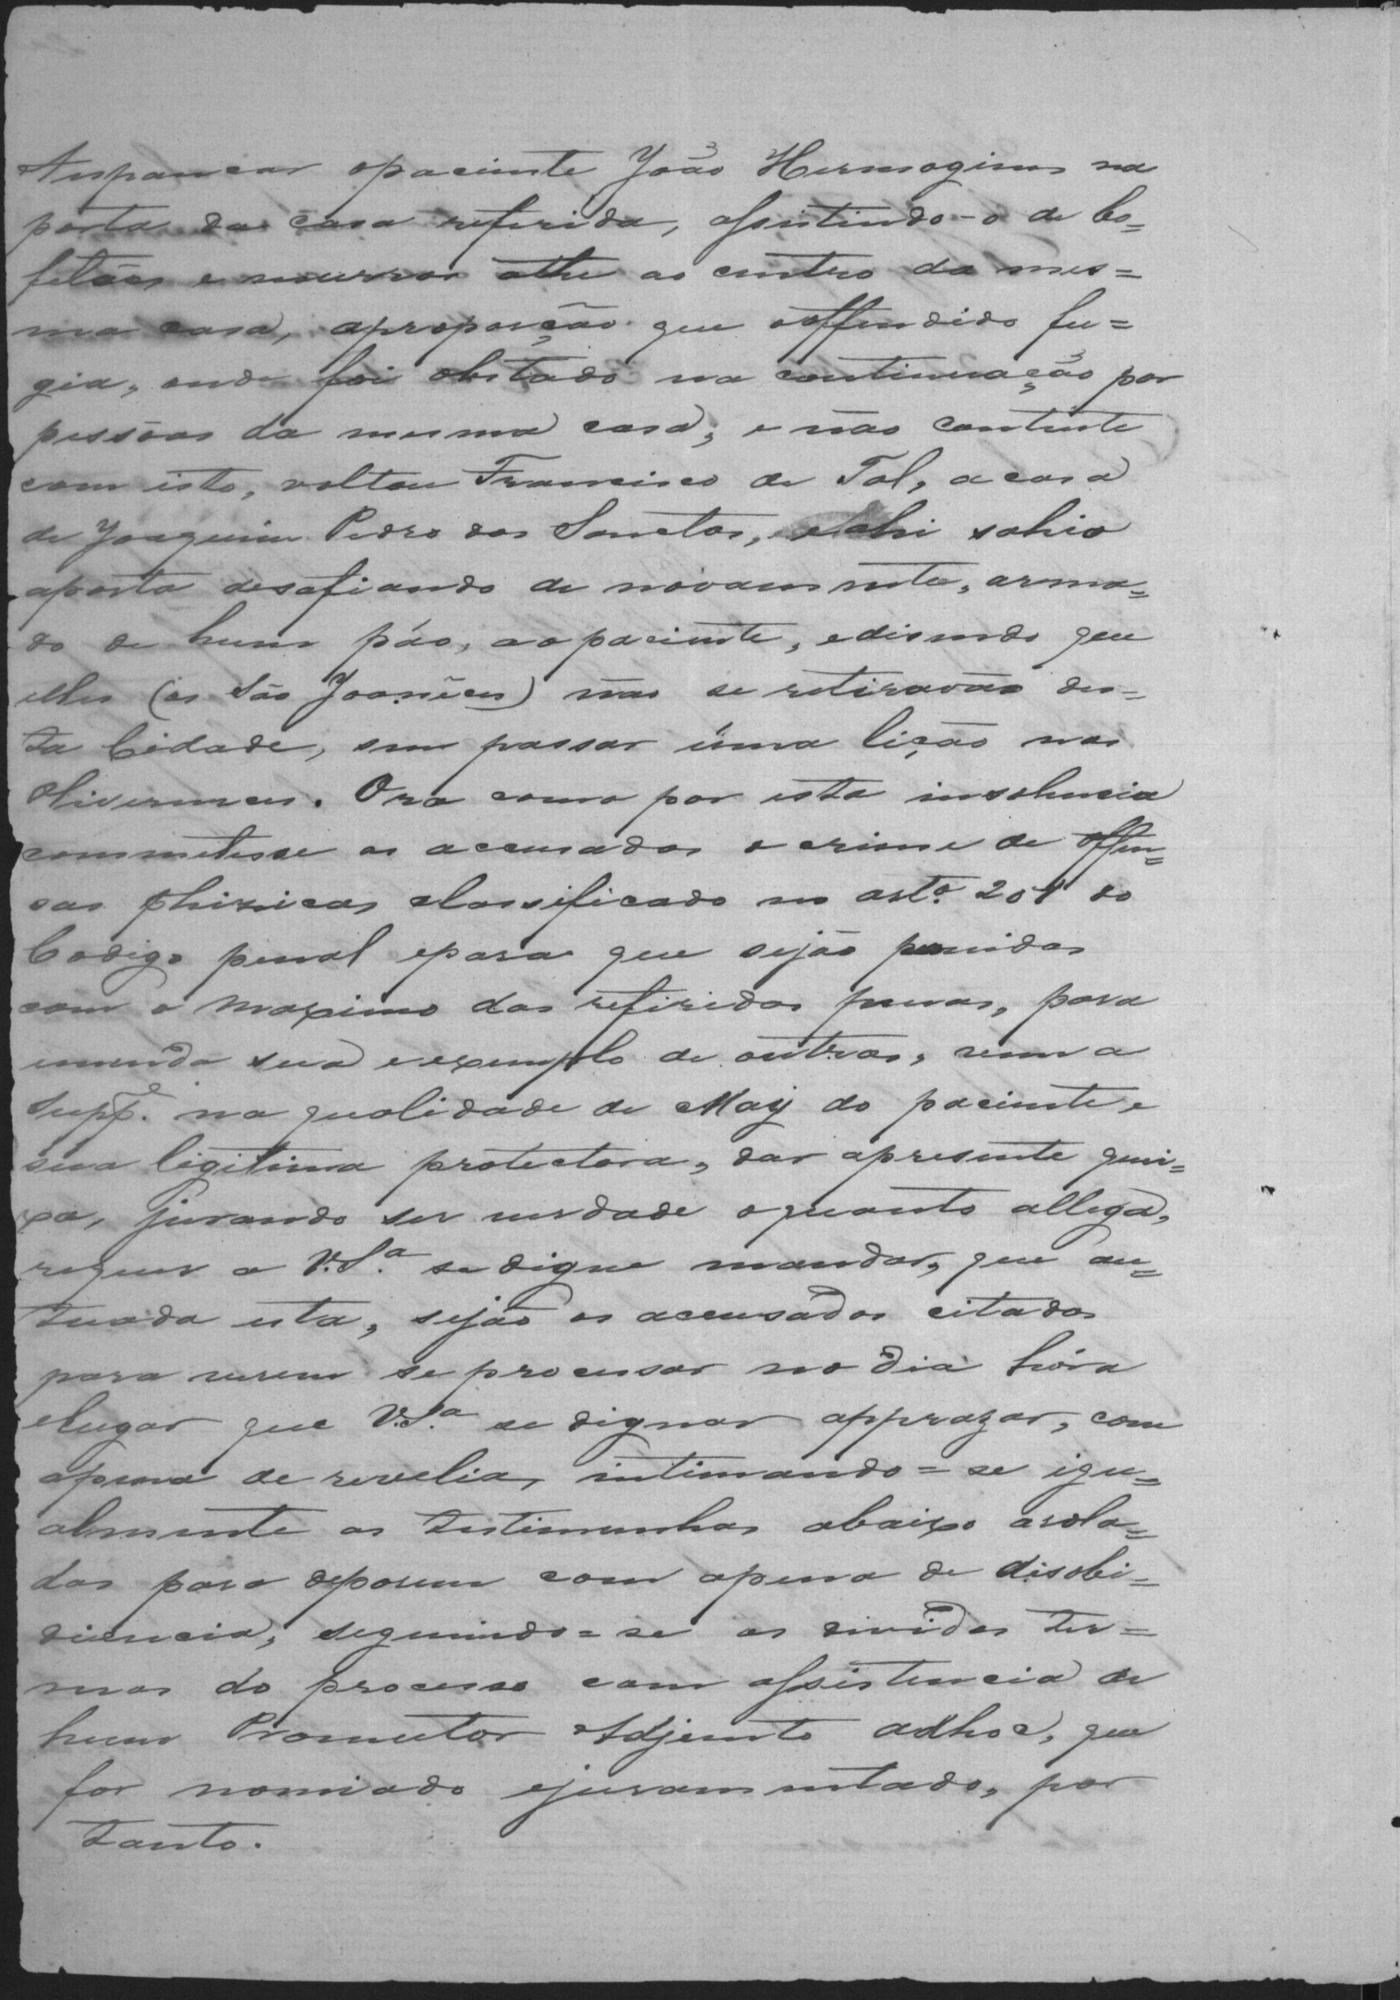 Aespancar opaciente João Hermogines na
porta da casa referida, assintindo-o de bo=
fetões e murros athe ao centro da mes=
ma casa, aproporção que ooffendido fu=
gia, onde foi obstado na continuação por
pessôas da mesma casa, e não contente
com isto, voltou Francisco de Tal, a casa
de Joaquim Pedro dos Sanctos, e ahi sahio
aporta desafiando de novamente, arma=
do de hum páo, ao paciente, edisendo que
elles (os São Joanêces) não se retiravão des=
ta Cidade, sem passar uma lição nos
Oliverences. Ora como por esta insolencia
commetesse os accusados o crime de offen=
sas phizicas classificado no artº. 201 do
Codigo penal epara que sejão punidos
com o maximo das refiridas penas, para
emenda sua e exemplo de outros, vem a
Suppe. na qualidade de May do paciente e
sua legitima protectora, dar apresente quei=
xa, jurando ser verdade oquanto allega,
requer a V.Sª. se digne mandar, que au=
tuada esta, sejão os accusados citados
para verem se processar no dia hóra
elugar que V.Sª se dignar apprazar, com
apena de revelia, intimando=se igu=
almente as testimunhas abaixo arola=
das para deporem com apena de disobi=
diencia, seguindo=se os dividos ter=
mos do processo com assistencia de
hum Promutor Adjunto adhoc, que
for nomiado ejuramentado, por
tanto.